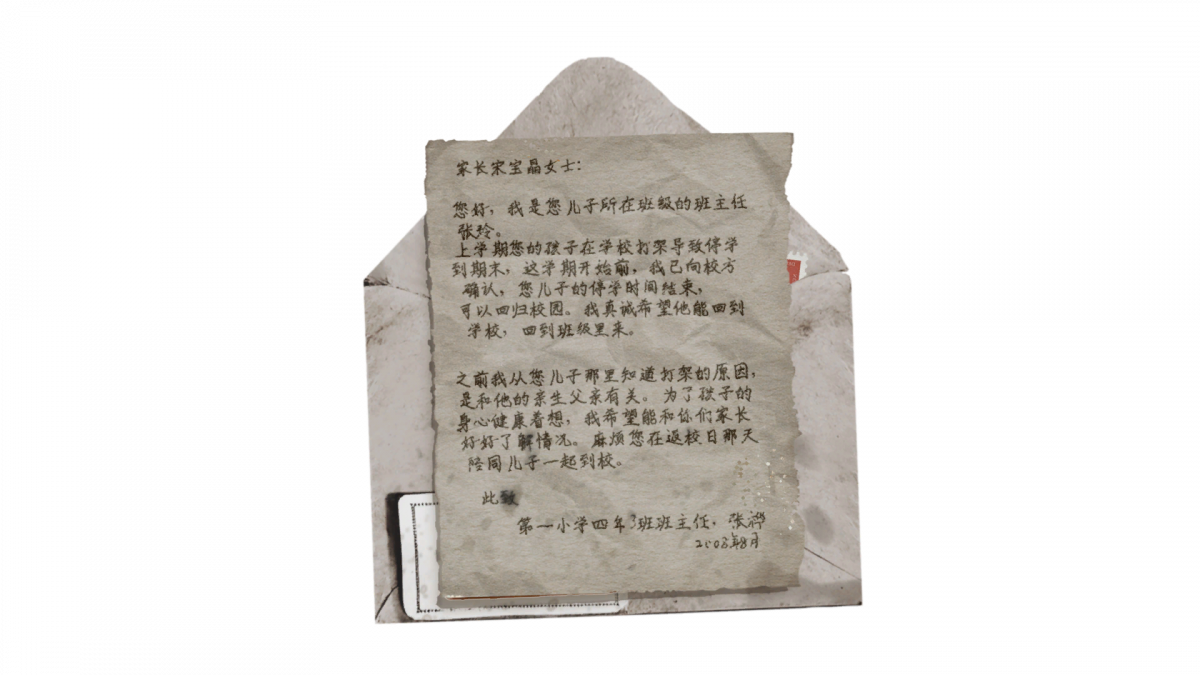 家长宋宝晶女士：
您好，我是您儿子所在班级的班主任
张玲。
上学期您的孩子在学校打架导致停学
到期末，这学期开始前，我已向校方
确认，您儿子的停学时间结束，
可以回归校园。我真诚希望他能回到
学校，回到班级里来。
之前我从您儿子那里知道打架的原因，
是和他的亲生父亲有关。为了孩子的
身心健康着想，我希望能和你们家长
好好了解情况。麻烦您在返校日那天
陪同儿子一起到校。
此致
第一小学四年3班班主任，张
2003年8月